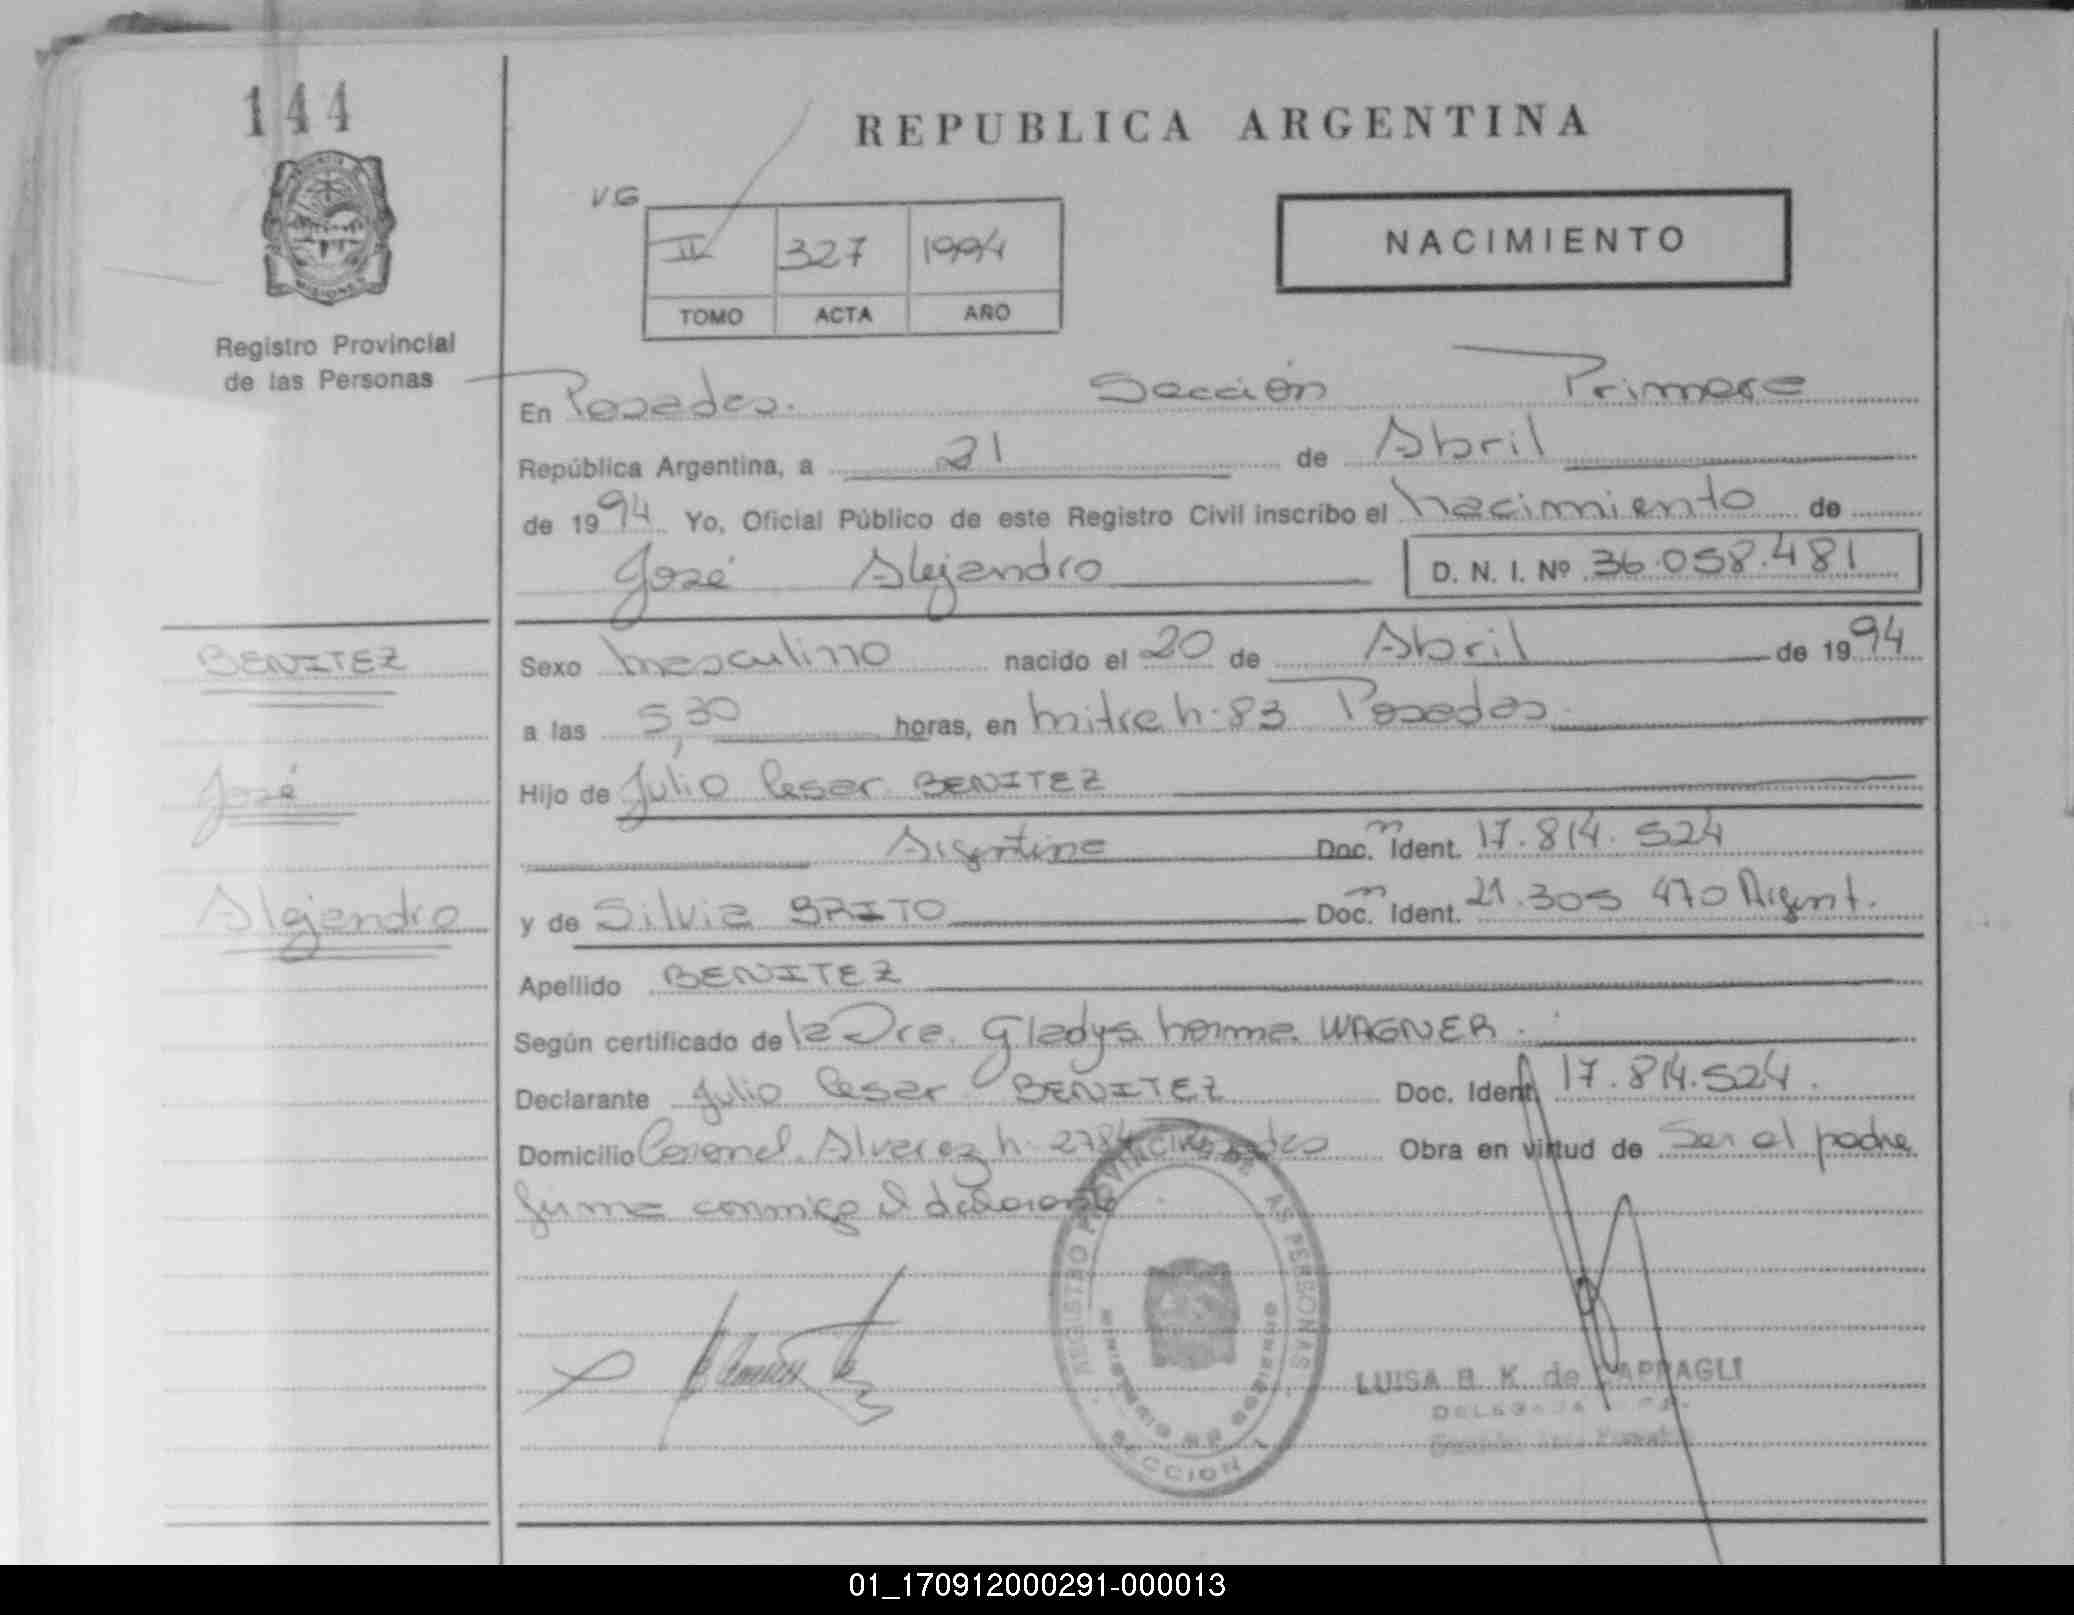 144
REPUBLICA ARGENTINA
VG
II 327 1994
TOMO ACTA AÑO
NACIMIENTO
MISIONES
Registro Provincial
de las Personas
En Posadas. Sección Primera
República Argentina, a 21 de Abril
de 1994 Yo, Oficial Público de este Registro Civil inscribo el nacimiento de
José Alejandro D. N. I. Nº 36.058.481
BENITEZ
José
Alejandro
Sexo masculino nacido el 20 de Abril de 1994
a las 5,30 horas, en mitre n: 83 Posadas.
Hijo de Julio Cesar BENITEZ
Argentino Doc. m Ident. 17.814.524
y de Silvia BRITO Doc. m Ident. 21.305 470 Argent.
Apellido BENITEZ
Según certificado de la Dra. Gladys norma WAGNER.
Declarante Julio Cesar BENITEZ Doc. Ident. 17.814.524.
Domicilio Coronel Alverez n: Obra en virtud de Ser el padre
firma conmigo el declarante
REGISTRO PROVINCIAL DE LAS PERSONAS
MINISTERIO DE GOBIERNO
SECCION 1
LUISA B. K. de
01_170912000291-000013